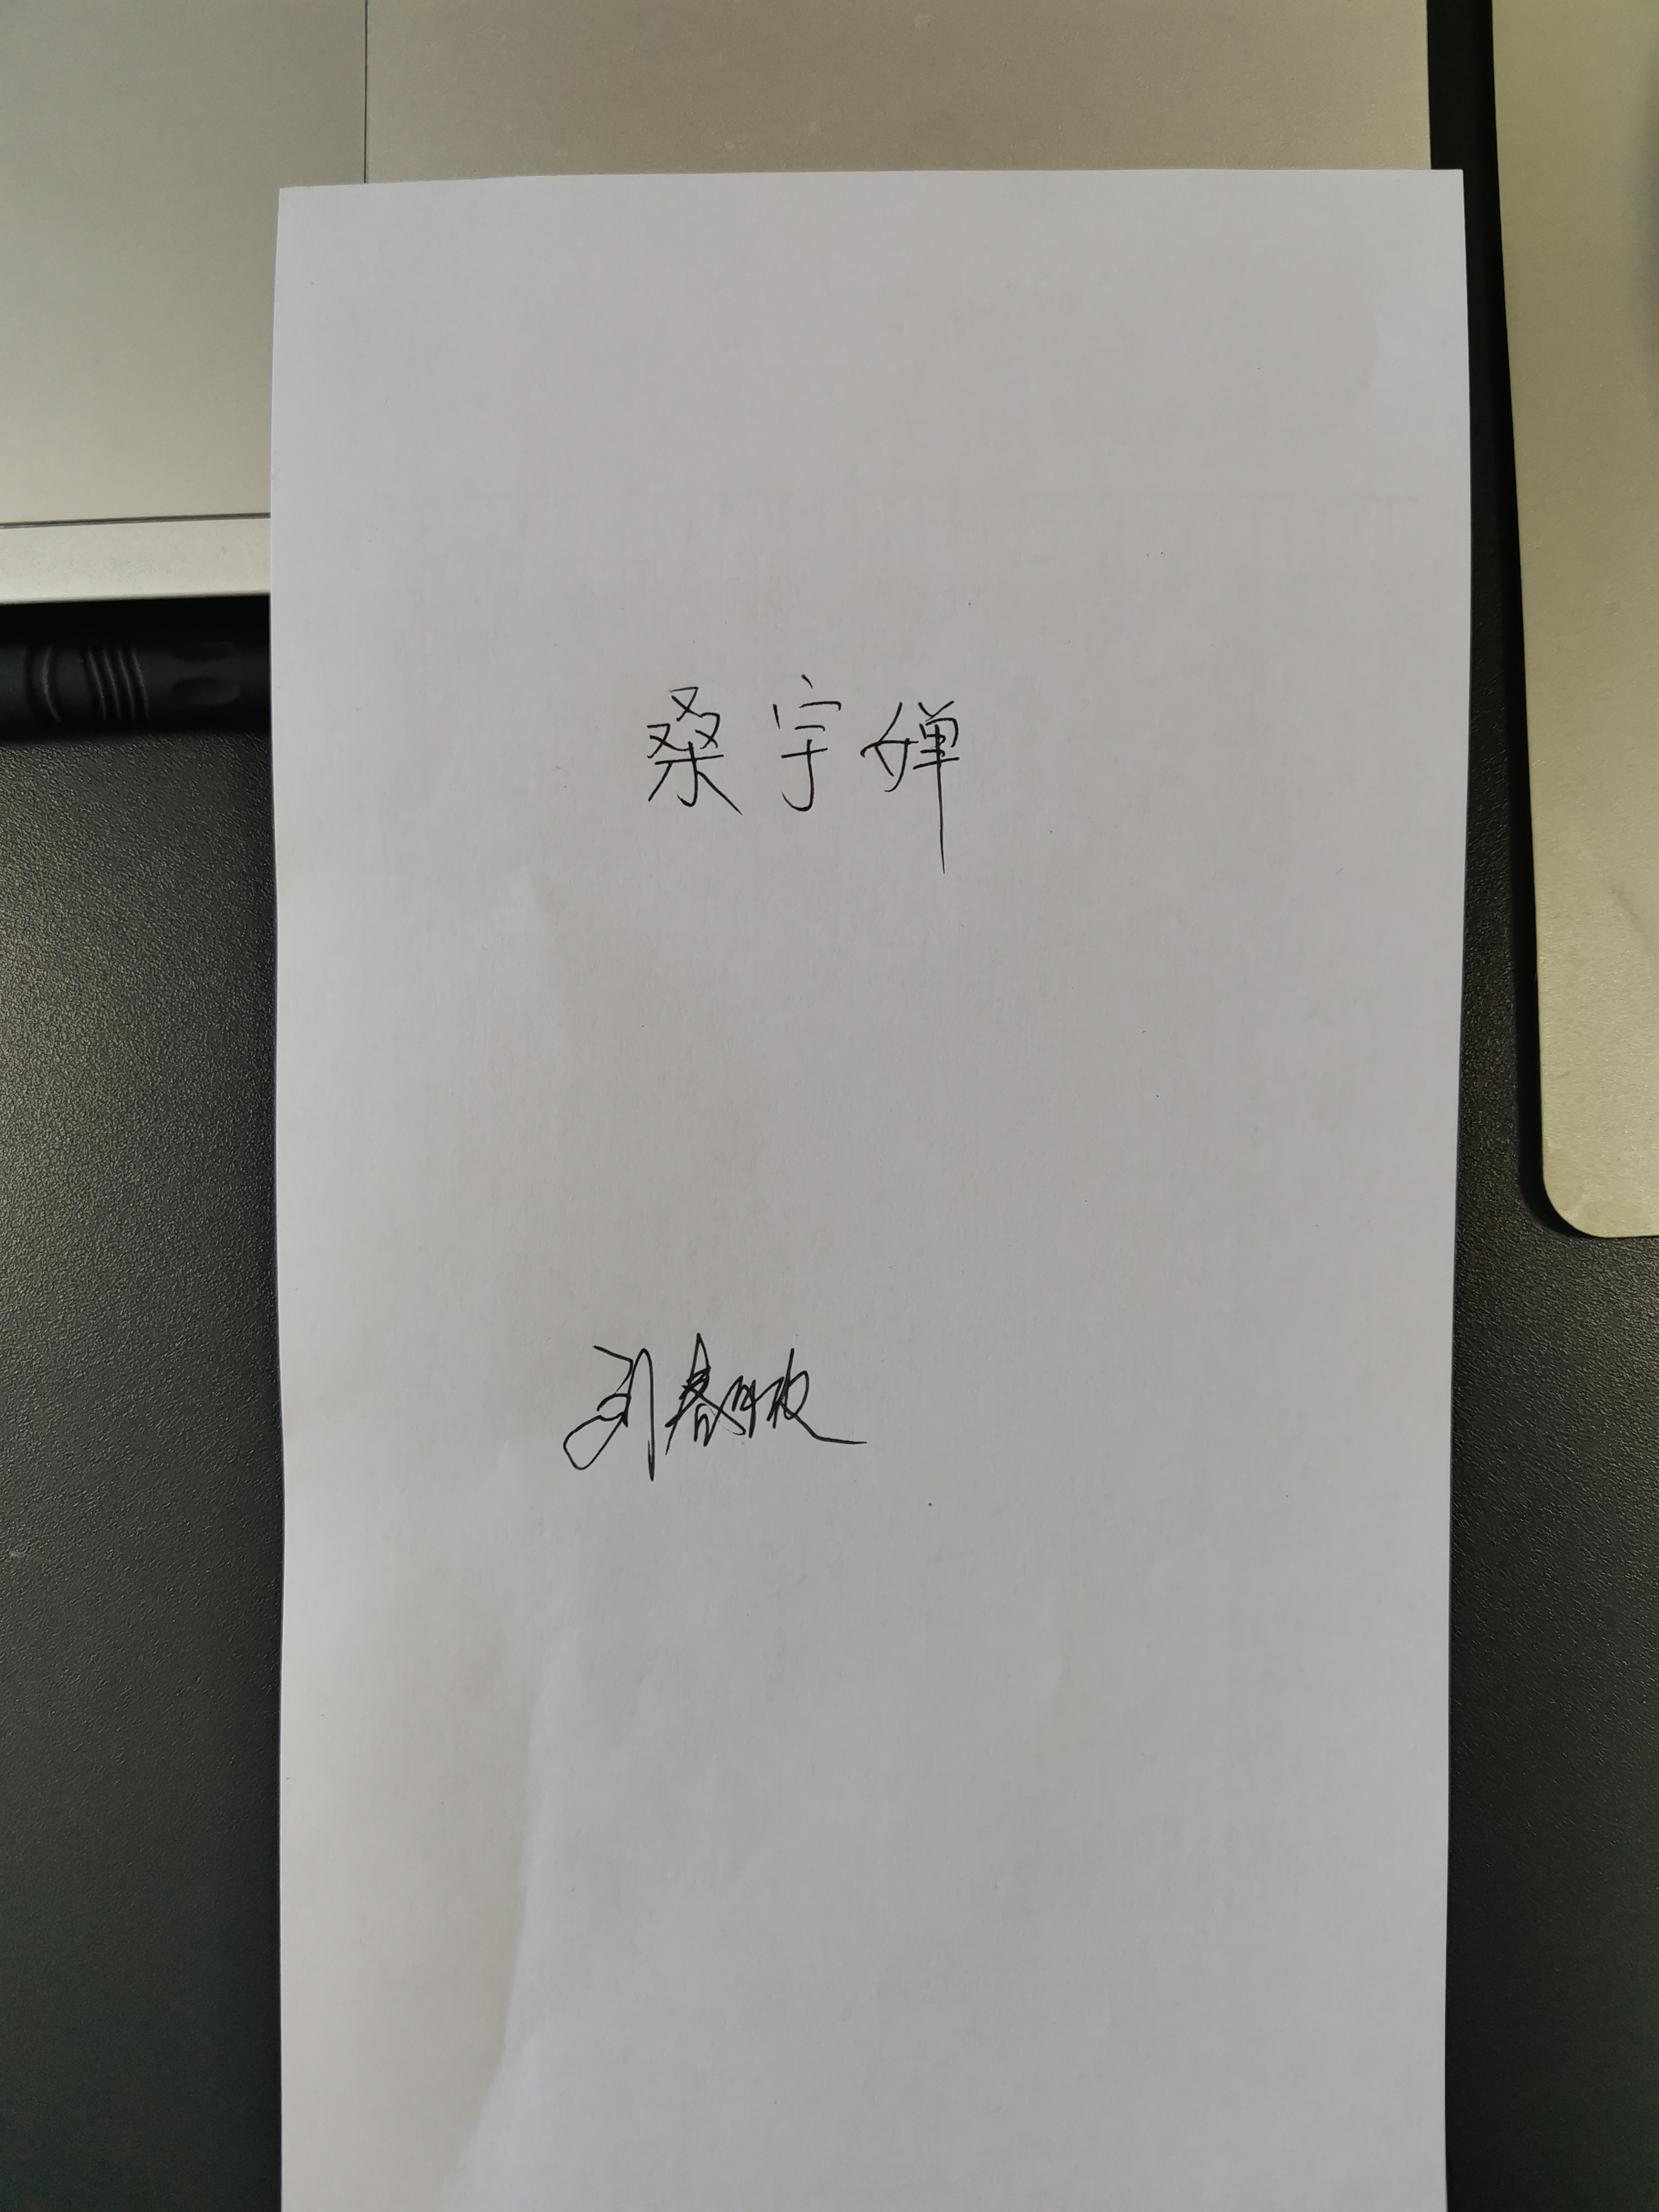 桑宇婵
刘春